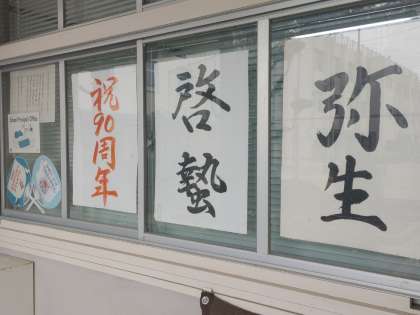 弥生
啓蟄
祝90周年